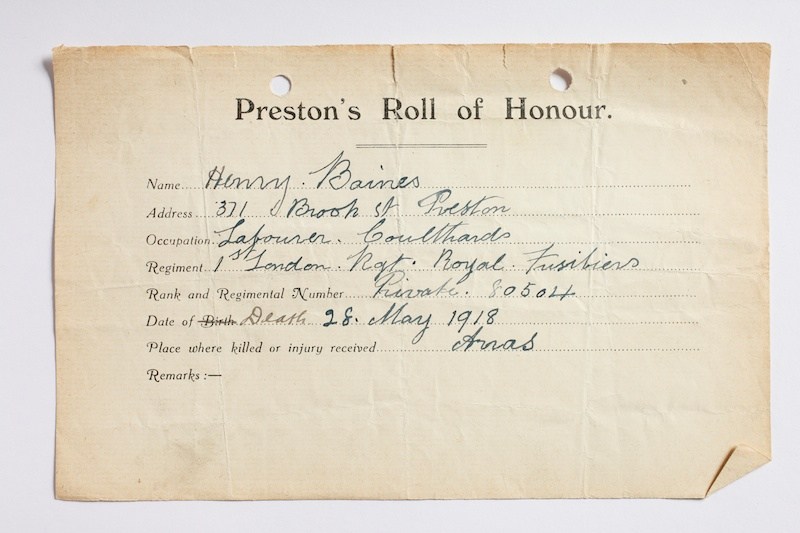 Preston's Roll of Honour.
Name Henry. Baines
Address 371 Brook St Preston
Occupation Labourer. Coulthards
Regiment 1st London. Rgt. Royal. Fusiliers
Rank and Regimental Number Private. 80504
Date of Birth Death 28. May 1918
Place where killed or injury received Arras
Remarks :—